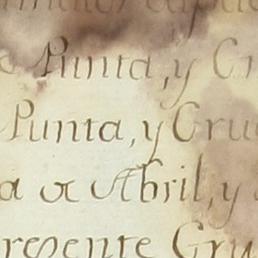 Punta, y
Punta, y Cru
a de Abril, y
resente Cru